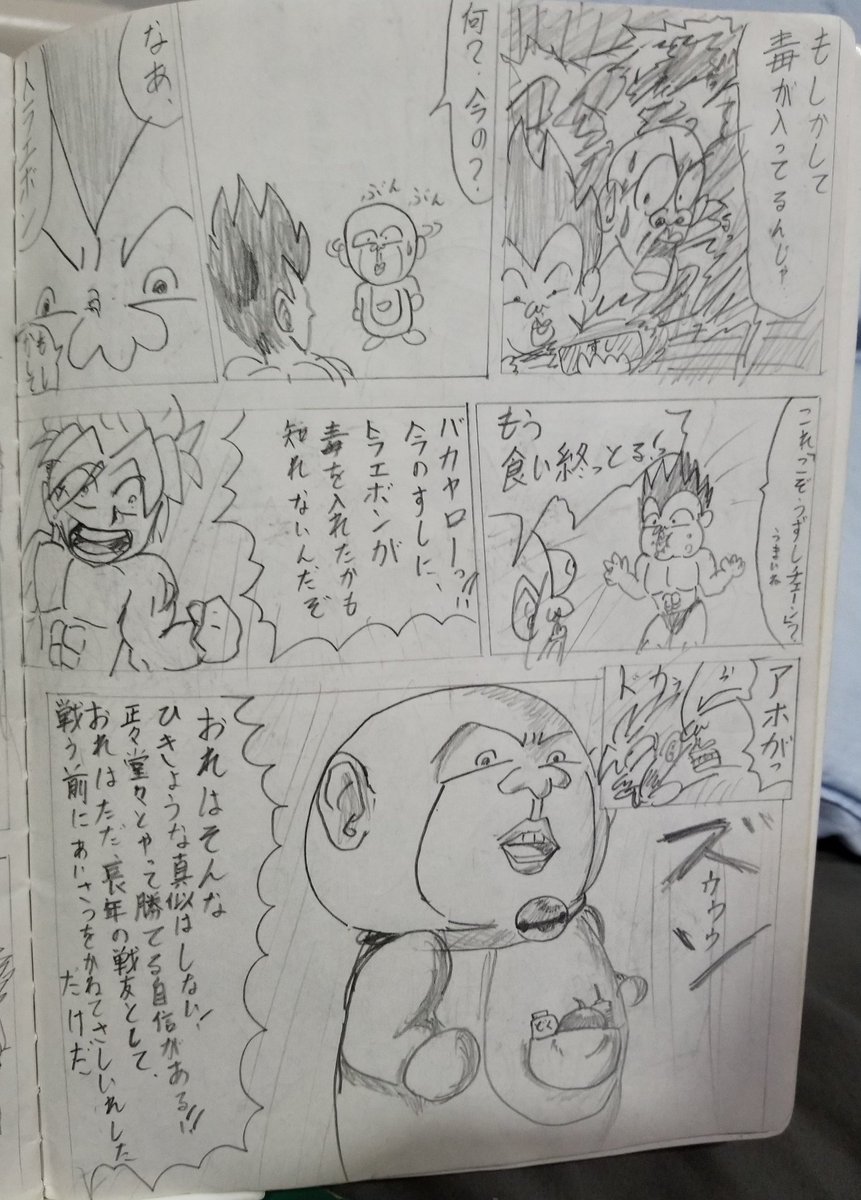 もしかして
毒が入ってるんじゃ
すし
何?今の?
ぶん
ぶん
なあ、
トラエボン
もし
かして
これっこぞうずしチェーン?
うまいね
もう
食い終っとるっ!
バカヤローッ!!
今のすしに、
トラエボンが
毒を入れたかも
知れないんだぞ
アホがっ
ドカッ
ズウウウン
おれはそんな
ひきょうな真似はしない!
正々堂々とやって勝てる自信がある!!
おれはただ、長年の戦友として、
戦う前にあいさつをかねてさしいれした
だけだ